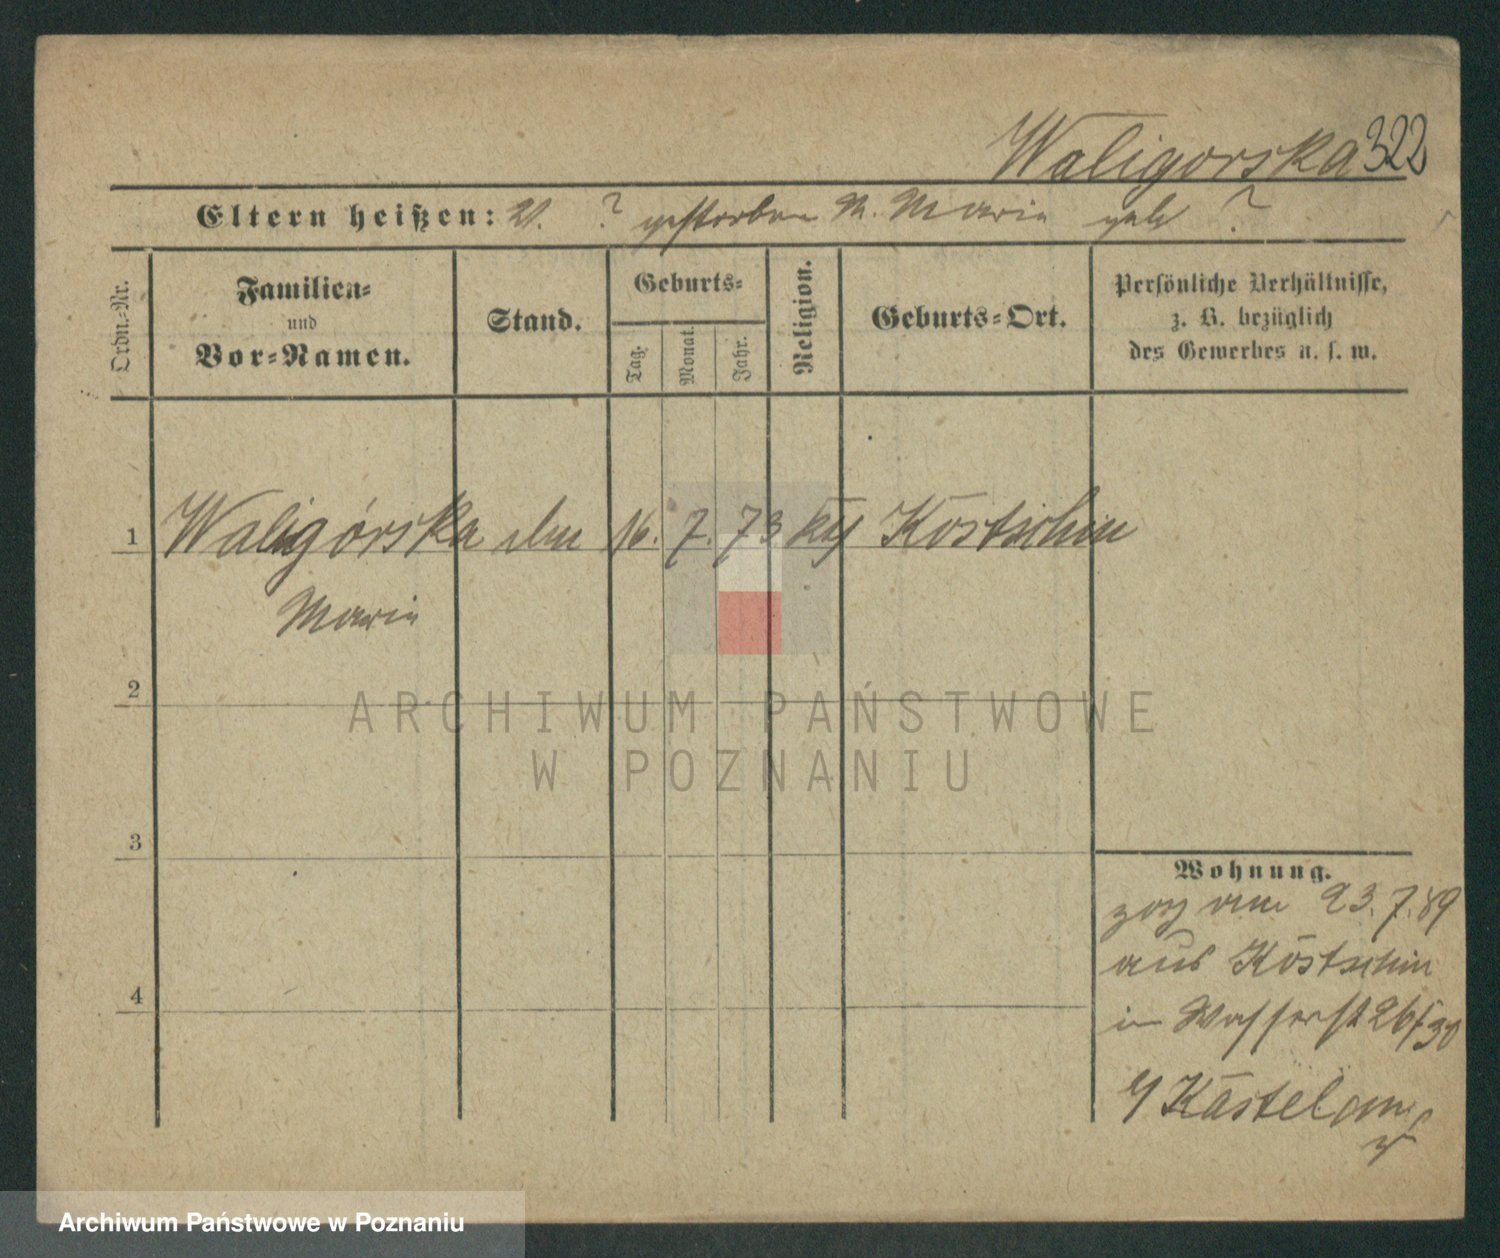 Waligorska 322
Eltern heißen: V. ? gestorben M. Marie geb ?
Ordn.-Nr.
Familien-
und
Vor-Namen.
Stand.
Geburts-
Tag.
Monat.
Jahr.
Religion.
Geburts-Ort.
Persönliche Verhältnisse,
z. B. bezüglich
des Gewerbes u. s. w.
1 Waligórska 16. 7. 73 Kostschin
Marie
2
3
4
Wohnung.
zog am 23.7.89
aus Kostschin
in Wasserst 26/30
ARCHIWUM PAŃSTWOWE
W POZNANIU
Archiwum Państwowe w Poznaniu